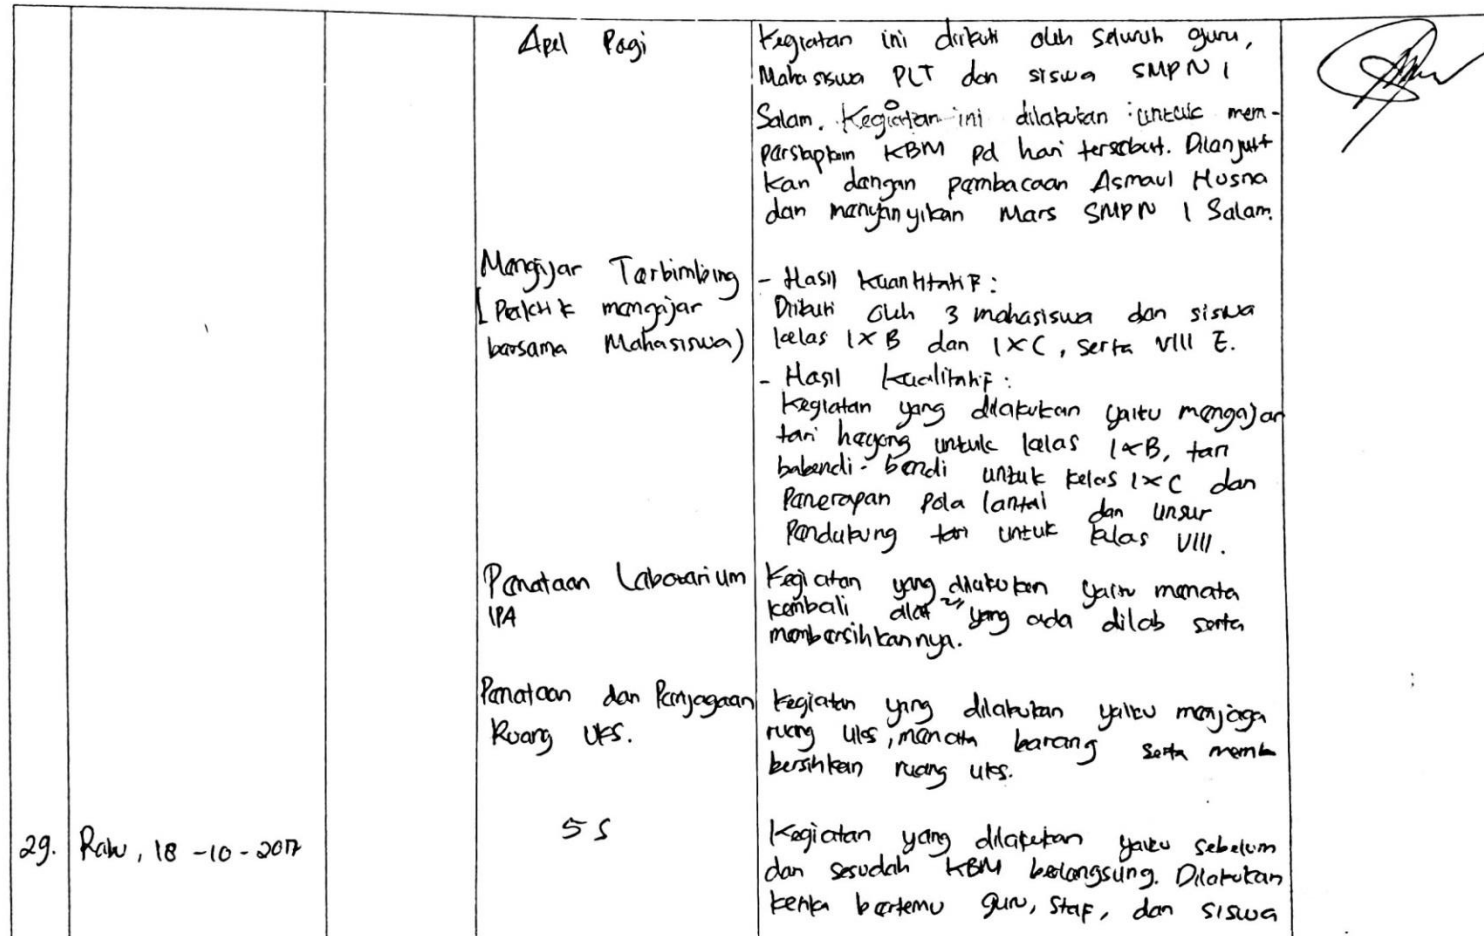 Apel Pagi
Kegiatan ini diikuti oleh seluruh guru,
Mahasiswa PLT dan siswa SMPN 1
Salam. Kegiatan ini dilakukan untuk mem-
persiapkan KBM pd hari tersebut. Dilanjut
kan dengan pembacaan Asmaul Husna
dan menyanyikan Mars SMPN 1 Salam.
Mengajar Terbimbing
[Praktik mengajar
bersama Mahasiswa)
- Hasil Kuantitatif :
Diikuti oleh 3 mahasiswa dan siswa
kelas IX B dan IX C, serta VIII E.
- Hasil Kualitatif :
Kegiatan yang dilakukan yaitu mengajar
tari untuk kelas IX B, tari
babendi-bendi untuk kelas IX C dan
Penerapan Pola lantai dan unsur
Pendukung tari untuk kelas VIII.
Penataan Laboratorium
IPA
Kegiatan yang dilakukan yaitu menata
kembali alat" yang ada dilab serta
membersihkannya.
Penataan dan Penjagaan
Ruang UKS.
Kegiatan yang dilakukan yaitu menjaga
ruang uks, menata barang serta memb
bersihkan ruang uks.
29. Rabu, 18-10-2017
5 S
Kegiatan yang dilakukan yaitu sebelum
dan sesudah KBM belangsung. Dilakukan
ketika bertemu guru, staf, dan siswa